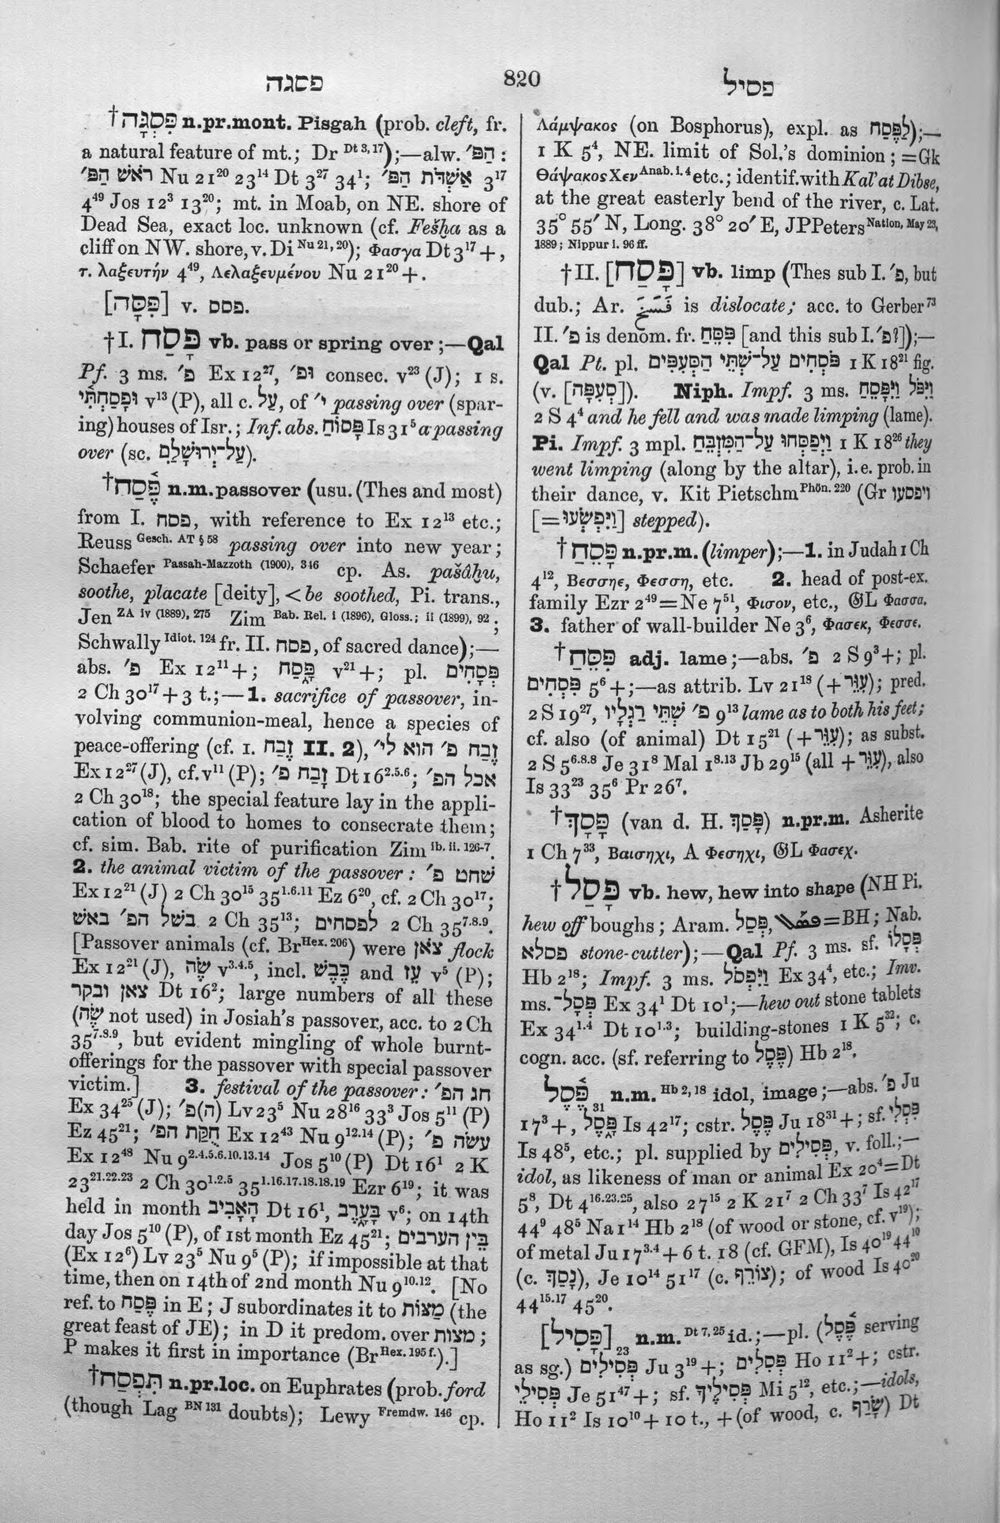 פסגה 820 פסיל
†פִּסְגָּה n.pr.mont. Pisgah (prob. cleft, fr.
a natural feature of mt.; Dr Dt 3, 17);—alw. הַפּ׳ :
רֹאשׁ הַפּ׳ Nu 21²⁰ 23¹⁴ Dt 3²⁷ 34¹; אַשְׁדֹּת הַפּ׳ 3¹⁷
4⁴⁹ Jos 12³ 13²⁰; mt. in Moab, on NE. shore of
Dead Sea, exact loc. unknown (cf. Fešḫa as a
cliff on NW. shore, v. Di Nu 21, 20); Φασγα Dt 3¹⁷ +,
τ. λαξευτήν 4⁴⁹, Λελαξευμένου Nu 21²⁰ +.
[פִּסָּה] v. פסס.
†I. פָּסַח vb. pass or spring over;—Qal
Pf. 3 ms. פ׳ Ex 12²⁷, וּפ׳ consec. v²³ (J); 1 s.
וּפָסַחְתִּי v¹³ (P), all c. עַל, of י׳ passing over (spar-
ing) houses of Isr.; Inf. abs. פָּסוֹחַ Is 31⁵ a passing
over (sc. עַל־יְרוּשָׁלִַם).
†פֶּ֫סַח n.m. passover (usu. (Thes and most)
from I. פסח, with reference to Ex 12¹³ etc.;
Reuss Gesch. AT § 58 passing over into new year;
Schaefer Passah-Mazzoth (1900), 346 cp. As. pašâḫu,
soothe, placate [deity], < be soothed, Pi. trans.,
Jen ZA iv (1889), 275 Zim Bab. Rel. i (1896), Gloss.; ii (1899), 92;
Schwally Idiot. 124 fr. II. פסח, of sacred dance);—
abs. פ׳ Ex 12¹¹ +; פָּסַח v²¹ +; pl. פְּסָחִים
2 Ch 30¹⁷ + 3 t.;—1. sacrifice of passover, in-
volving communion-meal, hence a species of
peace-offering (cf. I. זֶבַח II. 2), זֶבַח פ׳ הוּא לי״
Ex 12²⁷ (J), cf. v¹¹ (P); זָבַח פ׳ Dt 16².⁵.⁶; אכל הפ׳
2 Ch 30¹⁸; the special feature lay in the appli-
cation of blood to homes to consecrate them;
cf. sim. Bab. rite of purification Zim ib. ii. 126-7.
2. the animal victim of the passover: שׁחט פ׳
Ex 12²¹ (J) 2 Ch 30¹⁵ 35¹.⁶.¹¹ Ez 6²⁰, cf. 2 Ch 30¹⁷;
בִּשֵּׁל הפ׳ באשׁ 2 Ch 35¹³; לפסחים 2 Ch 35⁷.⁸.⁹.
[Passover animals (cf. Br Hex. 206) were צֹאן flock
Ex 12²¹ (J), שֶׂה v³.⁴.⁵, incl. כֶּבֶשׂ and עֵז v⁵ (P);
צאן ובקר Dt 16²; large numbers of all these
(שֶׂה not used) in Josiah's passover, acc. to 2 Ch
35⁷.⁸.⁹, but evident mingling of whole burnt-
offerings for the passover with special passover
victim.] 3. festival of the passover: חג הפ׳
Ex 34²⁵ (J); (ה)פ׳ Lv 23⁵ Nu 28¹⁶ 33³ Jos 5¹¹ (P)
Ez 45²¹; חֻקַּת הפ׳ Ex 12⁴³ Nu 9¹².¹⁴ (P); עשׂה פ׳
Ex 12⁴⁸ Nu 9².⁴.⁵.⁶.¹⁰.¹³.¹⁴ Jos 5¹⁰ (P) Dt 16¹ 2 K
23²¹.²².²³ 2 Ch 30¹.².⁵ 35¹.¹⁶.¹⁷.¹⁸.¹⁸.¹⁹ Ezr 6¹⁹; it was
held in month הָאָבִיב Dt 16¹, בָּעָרֶב v⁶; on 14th
day Jos 5¹⁰ (P), of 1st month Ez 45²¹; בֵּין הערבים
(Ex 12⁶) Lv 23⁵ Nu 9⁵ (P); if impossible at that
time, then on 14th of 2nd month Nu 9¹⁰.¹². [No
ref. to פֶּסַח in E; J subordinates it to מַצּוֹת (the
great feast of JE); in D it predom. over מצות;
P makes it first in importance (Br Hex. 195 f.).]
†תִּפְסַח n.pr.loc. on Euphrates (prob. ford
(though Lag BN 131 doubts); Lewy Fremdw. 146 cp.
Λάμψακος (on Bosphorus), expl. as לַפֶּסַח);—
1 K 5⁴, NE. limit of Sol.'s dominion; = Gk
Θάψακος Xen Anab. 1, 4 etc.; identif. with Kal'at Dibse,
at the great easterly bend of the river, c. Lat.
35° 55′ N, Long. 38° 20′ E, JPPeters Nation, May 23,
1889; Nippur i. 96 ff.
†II. [פָּסַח] vb. limp (Thes sub I. פ׳, but
dub.; Ar. فَسَخَ is dislocate; acc. to Gerber⁷³
II. פ׳ is denom. fr. פִּסֵּחַ [and this sub I. פ׳?]);—
Qal Pt. pl. פֹּסְחִים עַל־שְׁתֵּי הַסְּעִפִּים 1 K 18²¹ fig.
(v. [סְעִפָּה]). Niph. Impf. 3 ms. וַיִּפֹּל וַיִּפָּסֵחַ
2 S 4⁴ and he fell and was made limping (lame).
Pi. Impf. 3 mpl. וַיְפַסְּחוּ עַל־הַמִּזְבֵּחַ 1 K 18²⁶ they
went limping (along by the altar), i.e. prob. in
their dance, v. Kit Pietschm Phön. 220 (Gr ויפסעו
[= וַיְפַשְּׂעוּ] stepped).
†פָּסֵחַ n.pr.m. (limper);—1. in Judah 1 Ch
4¹², Βεσσηε, Φεσση, etc. 2. head of post-ex.
family Ezr 2⁴⁹ = Ne 7⁵¹, Φισον, etc., 𝔊L Φασσα.
3. father of wall-builder Ne 3⁶, Φασεκ, Φεσσε.
†פִּסֵּחַ adj. lame;—abs. פ׳ 2 S 9³ +; pl.
פִּסְחִים 5⁶ +;—as attrib. Lv 21¹⁸ (+ עִוֵּר); pred.
2 S 19²⁷, פ׳ שְׁתֵּי רַגְלָיו 9¹³ lame as to both his feet;
cf. also (of animal) Dt 15²¹ (+ עִוֵּר); as subst.
2 S 5⁶.⁸.⁸ Je 31⁸ Mal 1⁸.¹³ Jb 29¹⁵ (all + עִוֵּר), also
Is 33²³ 35⁶ Pr 26⁷.
†פָּסָךְ (van d. H. פָּסַךְ) n.pr.m. Asherite
1 Ch 7³³, Βαισηχι, A Φεσηχι, 𝔊L Φασεχ.
†פָּסַל vb. hew, hew into shape (NH Pi.
hew off boughs; Aram. פְּסַל, ܦܣܰܠ = BH; Nab.
פסלא stone-cutter);—Qal Pf. 3 ms. sf. פְּסָלוֹ
Hb 2¹⁸; Impf. 3 ms. וַיִּפְסֹל Ex 34⁴, etc.; Imv.
ms. פְּסָל־ Ex 34¹ Dt 10¹;—hew out stone tablets
Ex 34¹.⁴ Dt 10¹.³; building-stones 1 K 5³²; c.
cogn. acc. (sf. referring to פֶּסֶל) Hb 2¹⁸.
פֶּ֫סֶל₃₁ n.m. Hb 2, 18 idol, image;—abs. פ׳ Ju
17³ +, פָּסֶל Is 42¹⁷; cstr. פֶּסֶל Ju 18³¹ +; sf. פִּסְלִי
Is 48⁵, etc.; pl. supplied by פְּסִילִים, v. foll.;—
idol, as likeness of man or animal Ex 20⁴ = Dt
5⁸, Dt 4¹⁶.²³.²⁵, also 27¹⁵ 2 K 21⁷ 2 Ch 33⁷ Is 42¹⁷
44⁹ 48⁵ Na 1¹⁴ Hb 2¹⁸ (of wood or stone, cf. v¹⁹);
of metal Ju 17³.⁴ + 6 t. 18 (cf. GFM), Is 40¹⁹ 44¹⁰
(c. נָסַךְ), Je 10¹⁴ 51¹⁷ (c. צוֹרֵף); of wood Is 40²⁰
44¹⁵.¹⁷ 45²⁰.
[פָּסִיל]₂₃ n.m. Dt 7, 25 id.;—pl. (פֶּ֫סֶל serving
as sg.) פְּסִילִים Ju 3¹⁹ +; פְּסִלִים Ho 11² +; cstr.
פְּסִילֵי Je 51⁴⁷ +; sf. פְּסִילֶיךָ Mi 5¹², etc.;—idols,
Ho 11² Is 10¹⁰ + 10 t., + (of wood, c. שָׂרַף) Dt